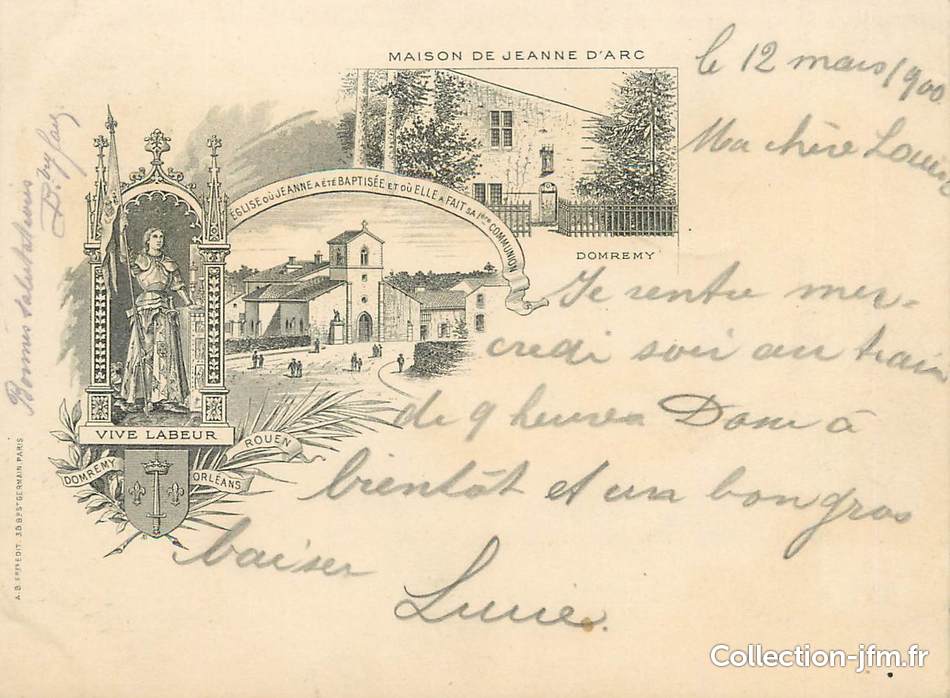 MAISON DE JEANNE D'ARC
le 12 mars/900
Ma chère
ÉGLISE OÙ JEANNE A ÉTÉ BAPTISÉE ET OÙ ELLE A FAIT SA 1ÈRE COMMUNION
DOMREMY
Je rentre mer-
credi soir au train
de 9 heures Donc à
bientôt et un bon gros
baiser
Lucie.
VIVE LABEUR
DOMREMY
ORLÉANS
ROUEN
Bonnes salutations
A.B. & FILS EDIT. 38 BD ST GERMAIN. PARIS
Collection-jfm.fr